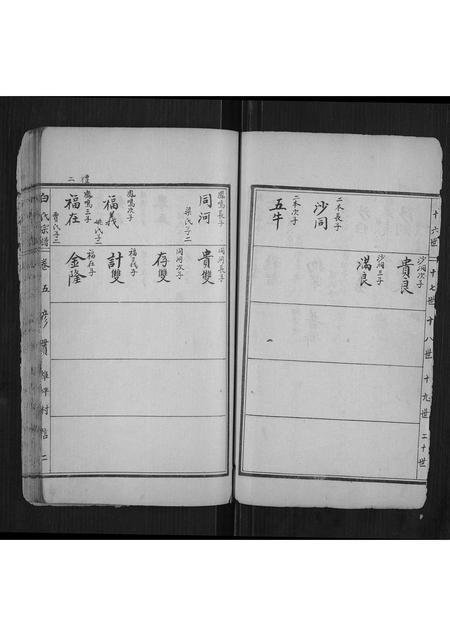 十六世
十七世
十八世
十九世
二十世
二木長子
沙同
二木次子
五牛
沙同次子
貴良
沙同三子
滿良
鳳鳴長子
同河
梁氏子二
鳳鳴次子
福義
姚氏子
鳳鳴三子
福在
曹氏子三
同河長子
貴雙
同河次子
存雙
福義子
計雙
福在子
金隆
二
禮
白氏宗譜
卷五
村信二